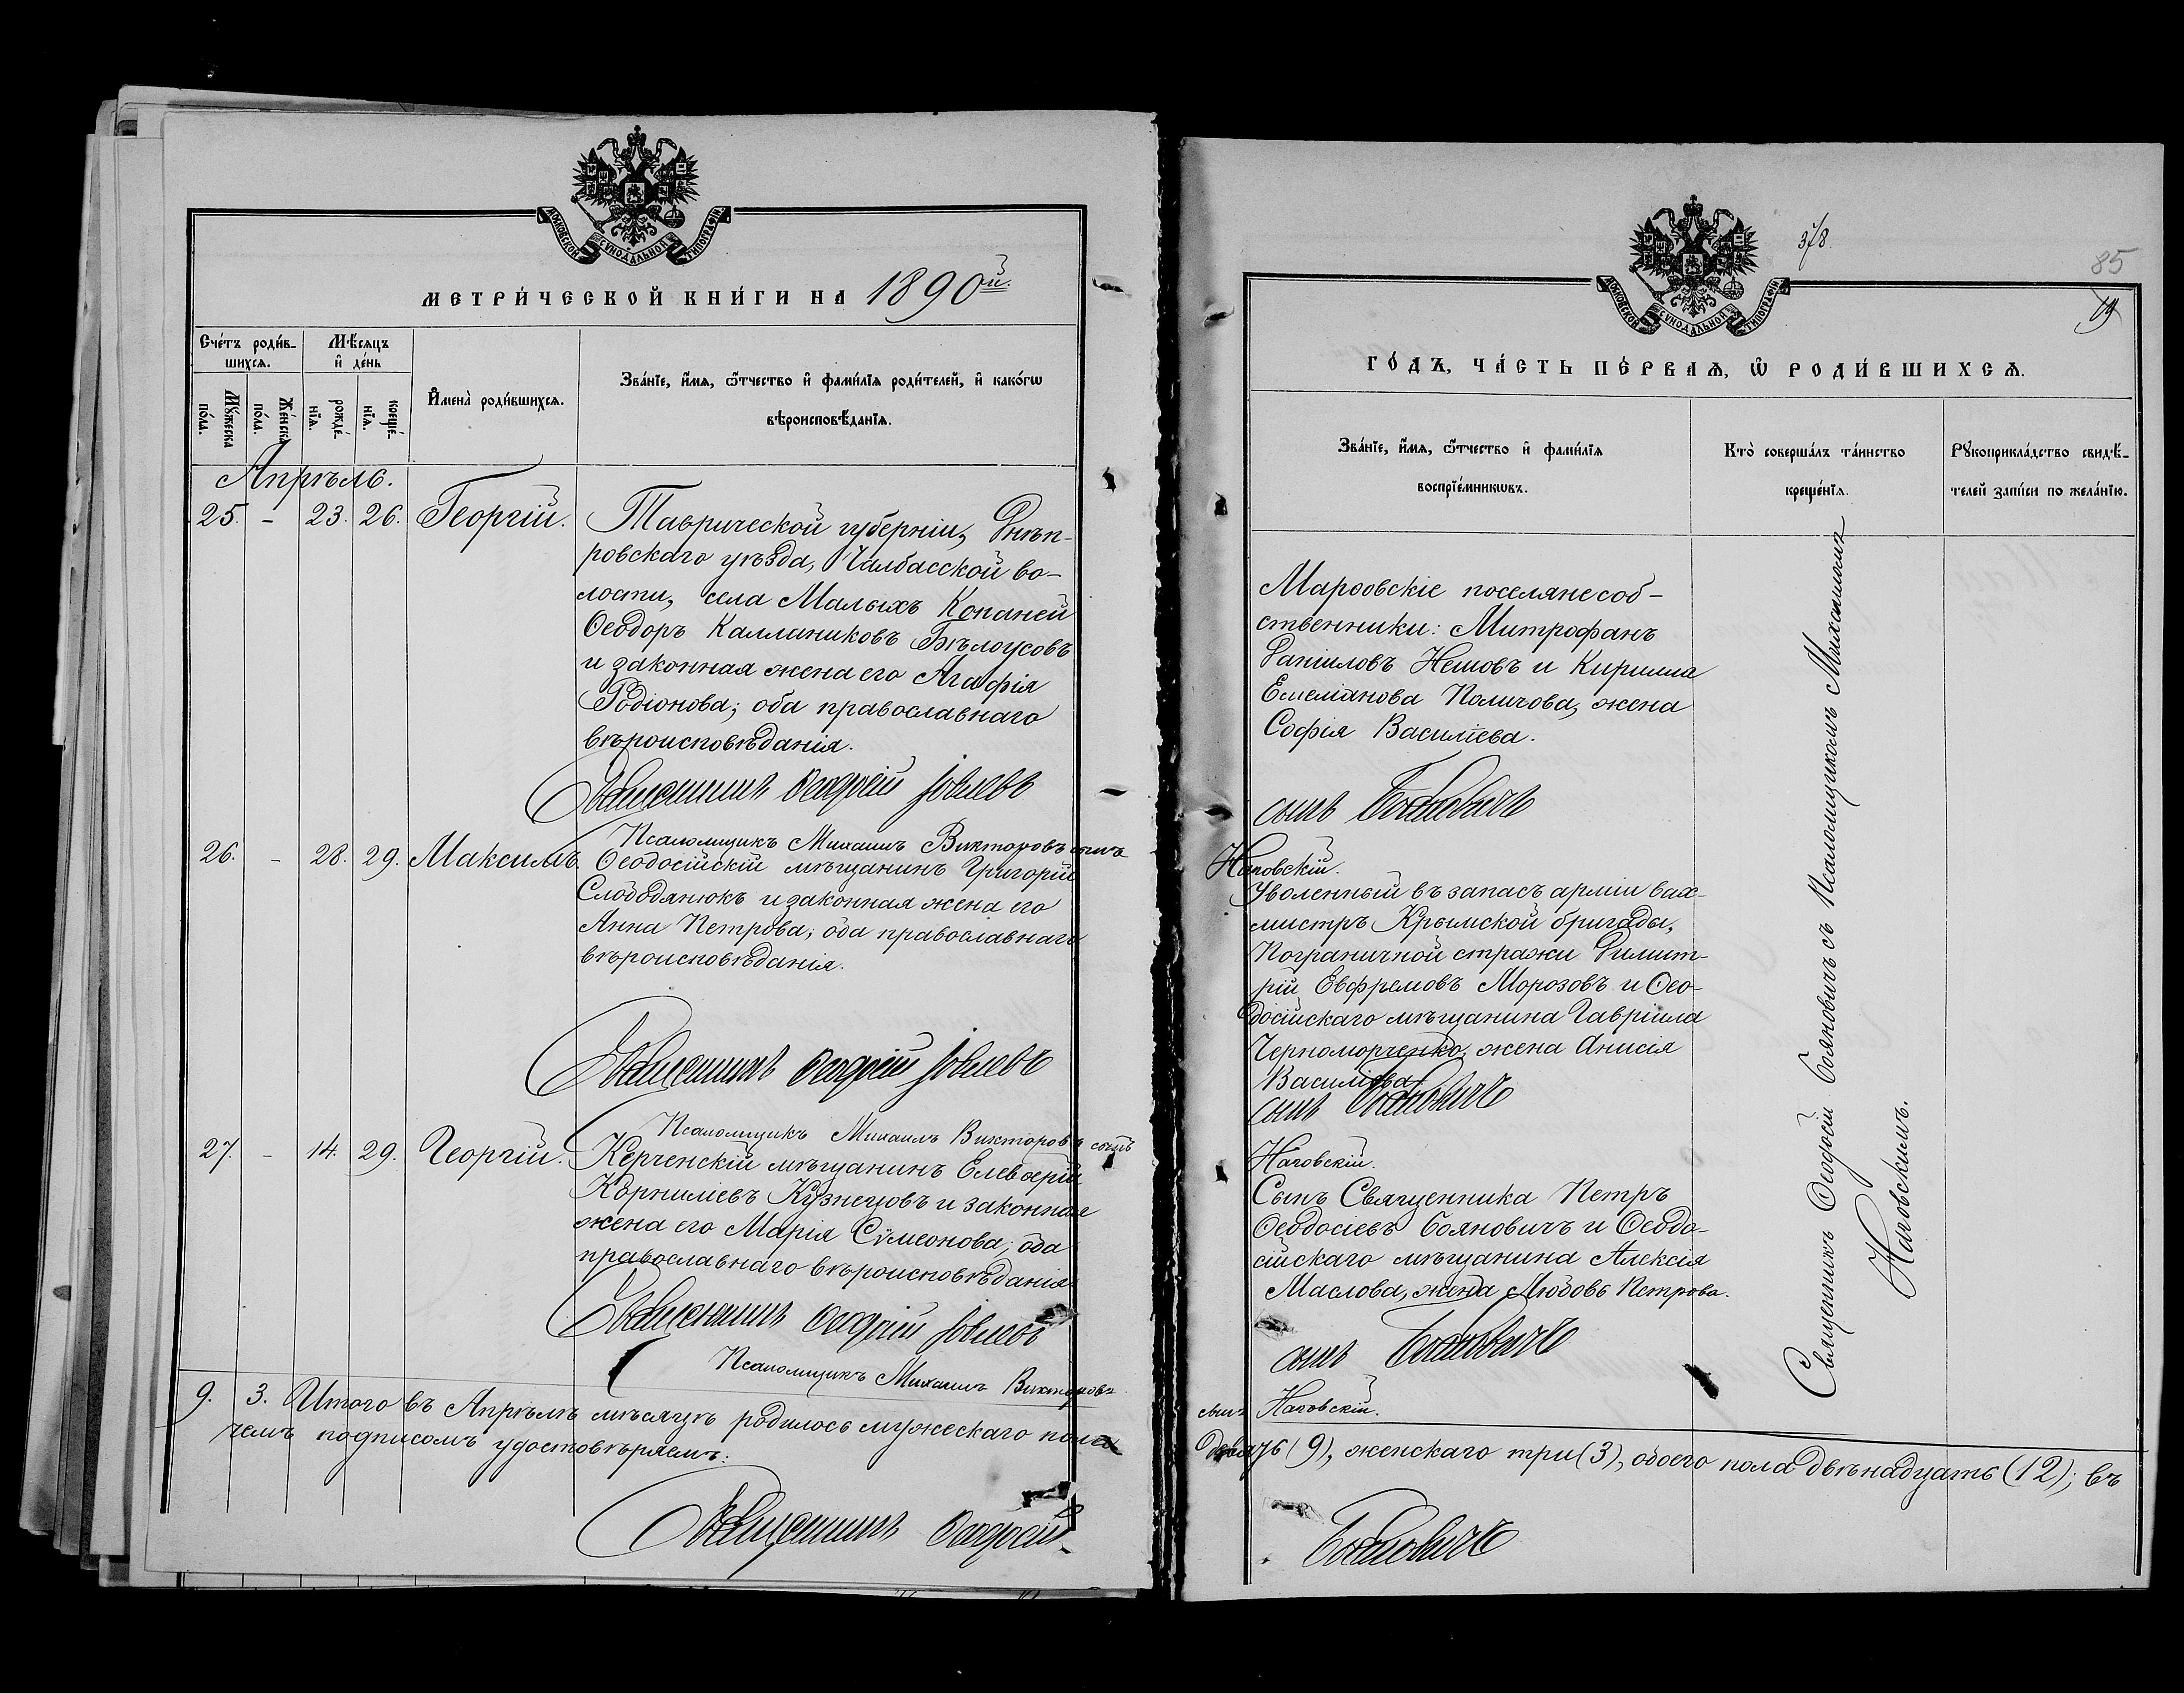 МОСКОВСКОЙ СѴНОДАЛЬНОЙ ТИПОГРАФІИ
МЕТРИ́ЧЕСКОЙ КНИ́ГИ НА 1890й.
Сче́тъ роди́в-
шихсѧ.
Мѣ́сѧцъ
и҆ де́нь
Мꙋ́жеска
по́ла.
Же́нска
по́ла.
рожде́-
нїѧ.
креще́-
нїѧ.
И҆мена̀ роди́вшихсѧ.
Зва́нїе, и҆́мѧ, ѻ҆́тчество и҆ фами́лїѧ роди́телей, и҆ како́гѡ
вѣроисповѣ́данїѧ.
Апрѣль.
25. - 23. 26. Георгій.
Таврической губерніи, Днѣп-
ровскаго уѣзда, Чалбасской во-
лости, села Малыхъ Копаней
Ѳеодоръ Калланиковъ Бѣлоусовъ
и законная жена его Агафія
Родіонова; оба православнаго
вѣроисповѣданія.
Священникъ Ѳеодосій Іовлевъ
Псаломщикъ Михаилъ Викторовъ сынъ
26. - 28. 29. Максимъ.
Ѳеодосійскій мѣщанинъ Григорій
Слободянюкъ и законная жена его
Анна Петрова; оба православнаго
вѣроисповѣданія.
Священникъ Ѳеодосій Іовлевъ
Псаломщикъ Михаилъ Викторовъ сынъ
27. - 14. 29. Георгій.
Керченскій мѣщанинъ Елевѳерій
Корниліевъ Кузнецовъ и законная
жена его Марія Сѵмеонова; оба
православнаго вѣроисповѣданія
Священникъ Ѳеодосій Іовлевъ
Псаломщикъ Михаилъ Викторовъ
9. 3. Итого въ Апрѣлѣ мѣсяцѣ родилось мужескаго пола
чемъ подписомъ удостовѣряемъ:
Священникъ Ѳеодосій
378.
85
19
МОСКОВСКОЙ СѴНОДАЛЬНОЙ ТИПОГРАФІИ
ГО́ДЪ, ЧА́СТЬ ПЕ́РВАѦ, Ѡ҆ РОДИ́ВШИХСѦ.
Зва́нїе, и҆́мѧ, ѻ҆́тчество и҆ фами́лїѧ
воспрїе́мникѡвъ.
Кто̀ соверша́лъ та́инство
креще́нїѧ.
Рꙋкоприкла́дство свидѣ́-
телей за́писи по жела́нїю.
поселяне соб-
ственники: Митрофанъ
Даніиловъ и Кирилла
Емеліанова жена
Софія Василіева.
сынъ Бояновичъ
Наговскій.
Уволенный въ запасъ арміи вах-
мистръ Крымской бригады,
Пограничной стражи Димит-
рій Евфремовъ Морозовъ и Ѳео-
досійскаго мѣщанина Гавріила
Черноморченко, жена Анисія
Василіева
сынъ Бояновичъ
Наговскій.
Сынъ Священника Петръ
Ѳеодосіевъ Бояновичъ и Ѳеодо-
сійскаго мѣщанина Алексія
Маслова, жена Любовь Петрова.
сынъ Бояновичъ
сынъ Наговскій.
девять (9), женскаго три (3), обоего пола двѣнадцать (12); въ
Бояновичъ
Священникъ Ѳеодосій Бояновичъ съ Псаломщикомъ Михаиломъ
Наговскимъ.